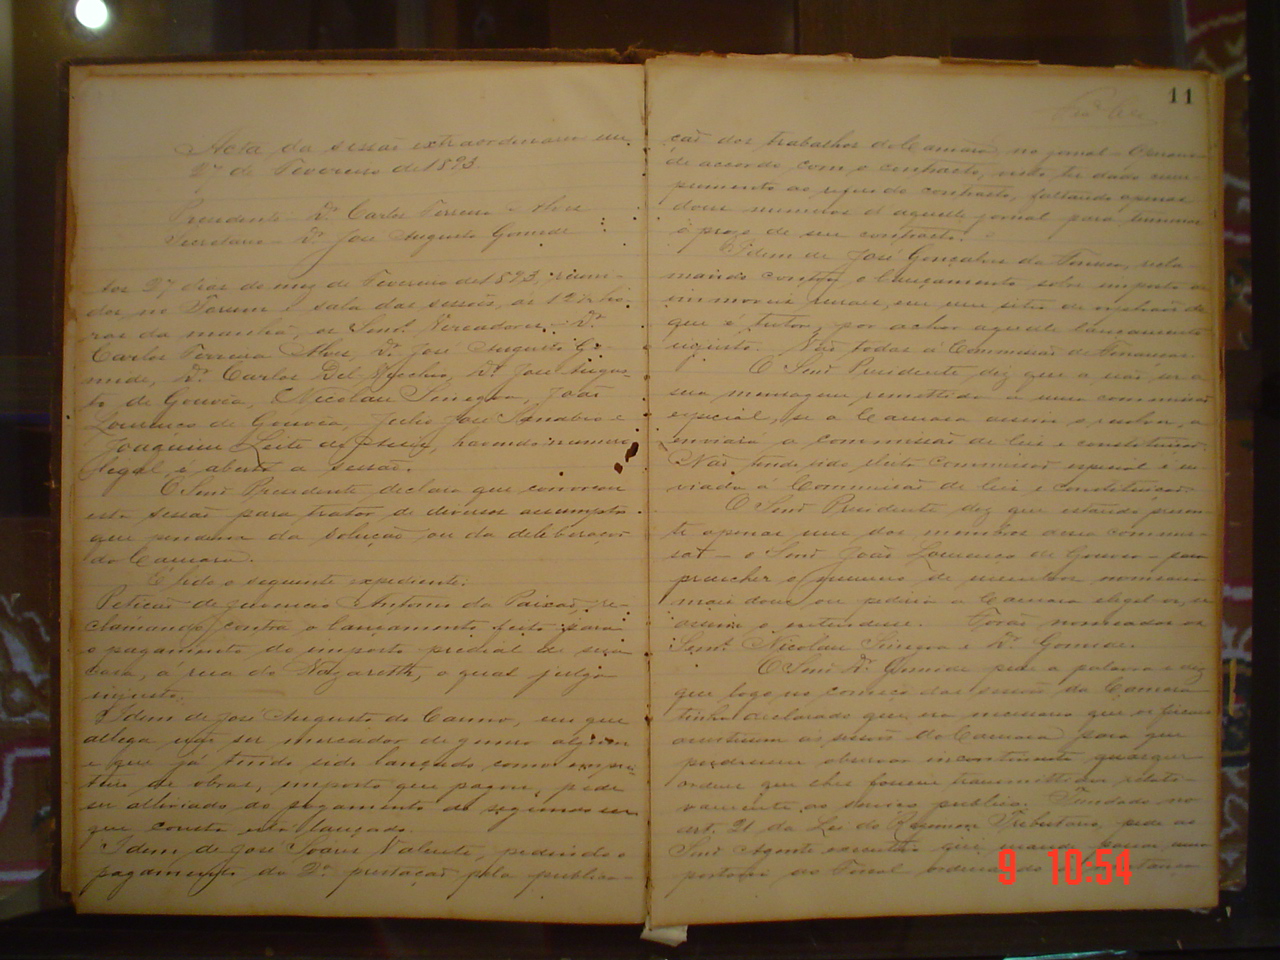 Acta da sessão extraordinaria em
27 de Fevereiro de 1893
Presidente – Dr. Carlos Ferreira Alves
Secretario – Dr. José Augusto Gomide
Aos 27 dias do mez de Fevereiro de 1893, reuni-
dos, no Forum e sala das sessões, as 12 ho-
ras da manhã, os Senrs. Vereadores – Dr.
Carlos Ferreira Alves, Dr. José Augusto Go-
mide, Dr. Carlos Del Vecchio, Dr. José Augus-
to de Gouvêa, Nicolau Sinegra, João
Lourenço de Gouvêa, Julio José e
Joaquim Leite de, havendo numero
legal é aberta a sessão.
O Senr. Presidente declara que convocou
esta sessão para tratar de diversos assumptos
que pendem da solução ou da deliberação
da Camara.
É lido o seguinte expediente:
Petição de Antonio da Paixão, re-
clamando contra o lançamento feito para
o pagamento do imposto predial de sua
casa, á rua do Nazareth, o qual julga
injusto.
Idem de José Augusto do Carmo, em que
allega não ser mercador de genero algum
e que já tendo sido lançado como emprei-
teiro de obras, imposto que pagou, pede
ser alliviado do pagamento do
que consta estar lançado.
Idem de José Soares Valente, pedindo o
pagamento da 2ª prestação pela publica-
11
ção dos trabalhos da Camara, no jornal –
de accordo com o contracto, visto ter dado cum-
primento ao referido contracto, faltando apenas
dous numeros d'aquelle jornal para terminar
o prazo de seu contracto.
Idem de José Gonçalves da Fonseca, recla-
mando contra o lançamento sobre imposto de
immoveis ruraes, em um sitio de orphãos de
que é tutor, por achar aquelle lançamento
injusto. Vão todas á Commissão de Finanças.
O Senr. Presidente diz que a não ser a
sua mensagem remettida a uma commissão
especial, se a Camara assim o resolver, a
enviará a Commissão de leis e constituição.
Não tendo sido eleita commissão especial é en-
viada á Commissão de leis e constituição.
O Senr. Presidente diz que estando presen-
te apenas um dos membros dessa commis-
são – o Senr. João Lourenço de Gouvea – para
preencher o numero de membros nomeava
mais dous ou pediria a Camara elegel-os, se
assim o entendesse. Forão nomeados os
Senrs. Nicolau Sinegra e Dr. Gomide.
O Senr. Dr. Gomide pede a palavra e diz
que logo no começo das sessões da Camara
tinha declarado que era necessario que os fiscaes
assistissem ás sessões da Camara para que
podessem observar incontinente quaesquer
ordens que lhes fossem transmittidas relati-
vamente ao serviço publico. Fundado no
art. 21 da Lei do Regimen Tributario, pede ao
Senr. Agente executivo que mande passar uma
portaria ao Fiscal ordenando
9 10:54